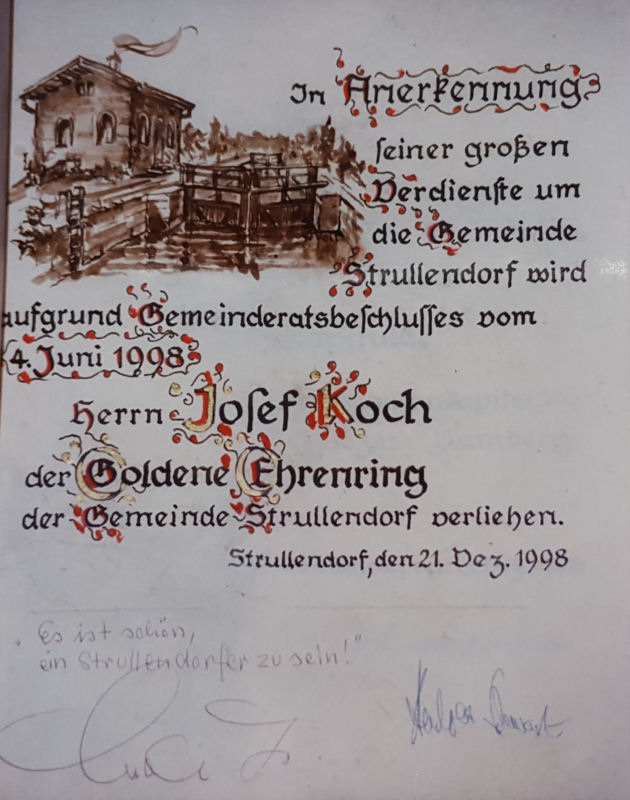 In Anerkennung
seiner großen
Verdienste um
die Gemeinde
Strullendorf wird
aufgrund Gemeinderatsbeschlusses vom
4. Juni 1998
Herrn Josef Koch
der Goldene Ehrenring
der Gemeinde Strullendorf verliehen.
Strullendorf, den 21. Dez. 1998
"Es ist schön,
ein Strullendorfer zu sein!"